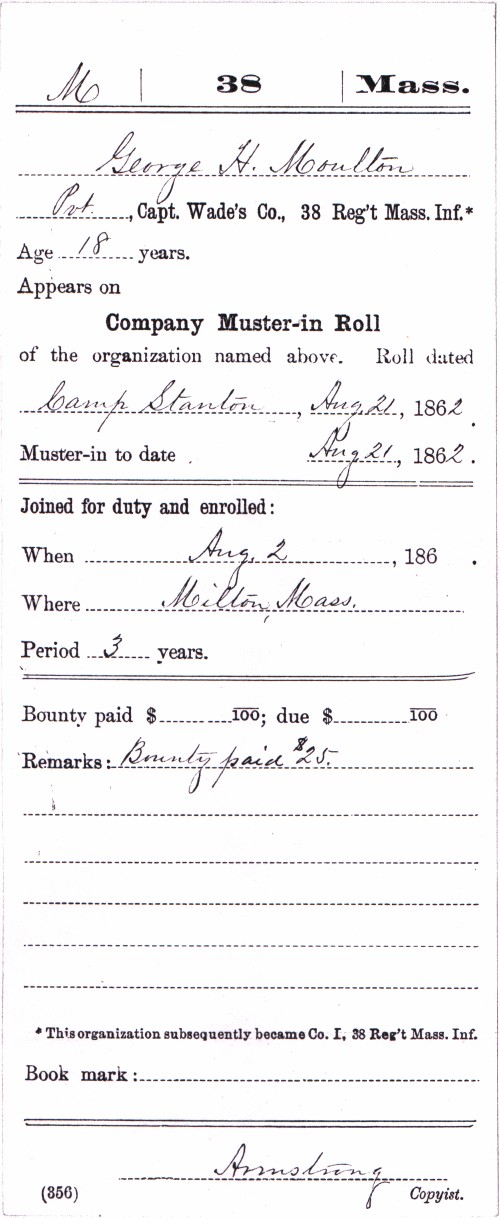 M | 38 | Mass.
George H. Moulton
Pvt., Capt. Wade's Co., 38 Reg't Mass. Inf.*
Age 18 years.
Appears on
Company Muster-in Roll
of the organization named above. Roll dated
Camp Stanton, Aug 21, 1862.
Muster-in to date Aug 21, 1862.
Joined for duty and enrolled:
When Aug. 2, 186 .
Where Milton, Mass.
Period 3 years.
Bounty paid $ 100; due $ 100
Remarks: Bounty paid $25.
* This organization subsequently became Co. I, 38 Reg't Mass. Inf.
Book mark:
Armstrong
(356) Copyist.